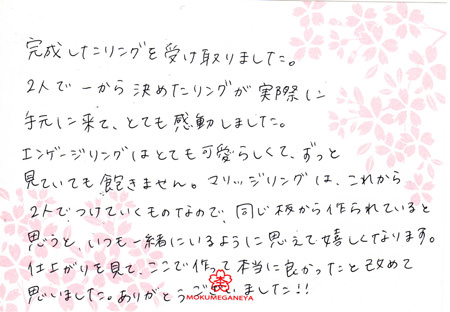 完成したリングを受け取りました。
2人で一から決めたリングが実際に
手元に来て、とても感動しました。
エンゲージリングはとても可愛らしくて、ずっと
見ていても飽きません。マリッジリングは、これから
2人でつけていくものなので、同じ板から作られていると
思うと、いつも一緒にいるように思えて嬉しくなります。
仕上がりを見て、ここで作って本当に良かったと改めて
思いました。ありがとうございました!!
MOKUMEGANEYA